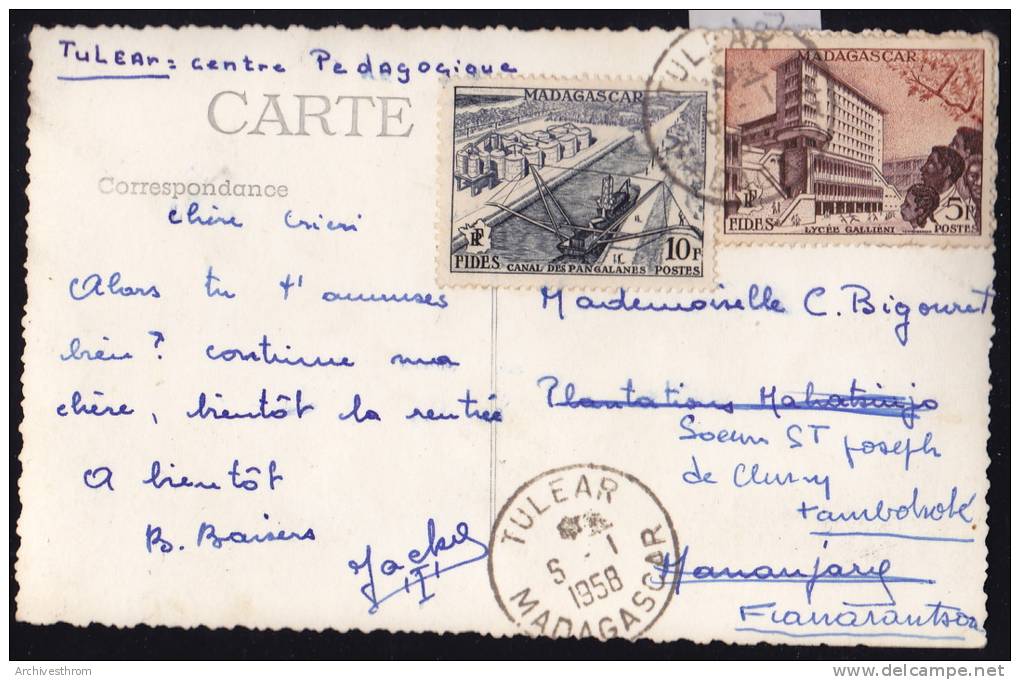 TULEAr = centre Pedagogique
CARTE
Correspondance
chère Crieri
Alors tu t'amuses
bien? continue ma
chère, bientôt la rentrée
A bientôt
B. Baisers
MADAGASCAR
RF
FIDES
10F
CANAL DES PANGALANES POSTES
TULEAR
MADAGASCAR
RF
FIDES
LYCÉE GALLIÉNI
5F
POSTES
Mademoiselle C. Bigouret
Plantations Mahatsinjo
Soeurs ST Joseph
de Cluny
Mananjary
Fianarantsoa
TULEAR
5 - 1
1958
MADAGASCAR
Archivesthrom
delcampe.net